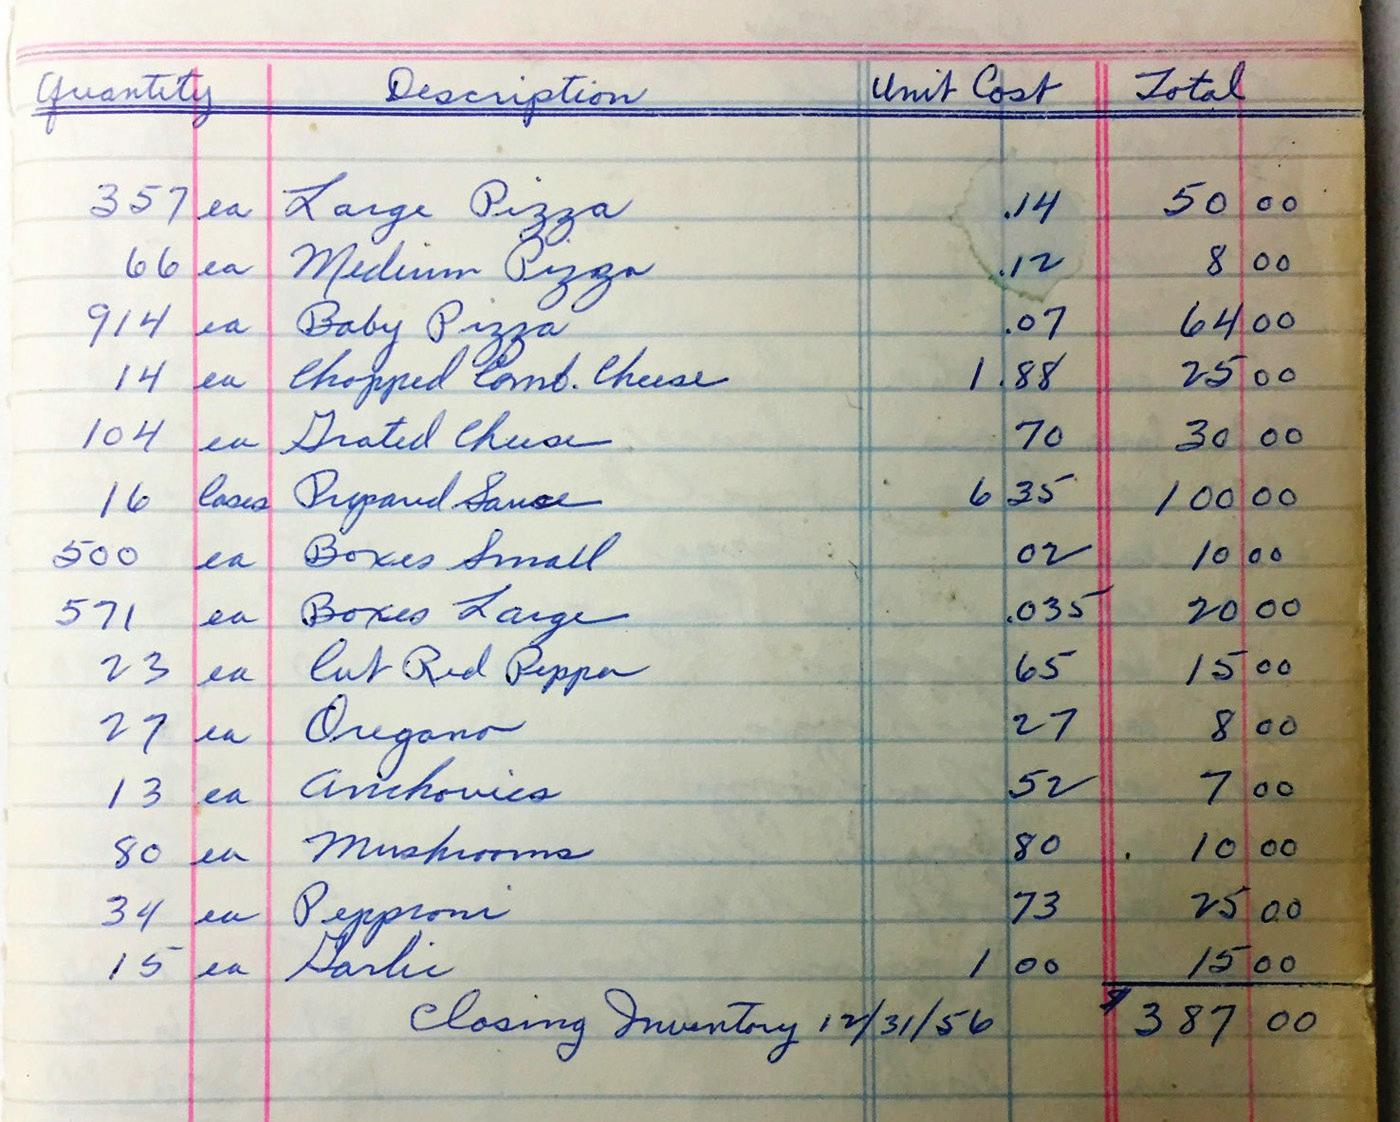 Quantity Description Unit Cost Total
357 ea Large Pizza .14 50 00
66 ea Medium Pizza .12 8 00
914 ea Baby Pizza .07 64 00
14 ea Chopped Comb. Cheese 1.88 25 00
104 ea Grated Cheese 70 30 00
16 Cases Prepared Sauce 6 35 100 00
500 ea Boxes Small 02 10 00
571 ea Boxes Large .035 20 00
23 ea Cut Red Pepper 65 15 00
27 ea Oregano 27 8 00
13 ea Anchovies 52 7 00
80 ea Mushrooms 80 10 00
34 ea Pepproni 73 25 00
15 ea Garlic 1 00 15 00
Closing Inventory 12/31/56 $387 00